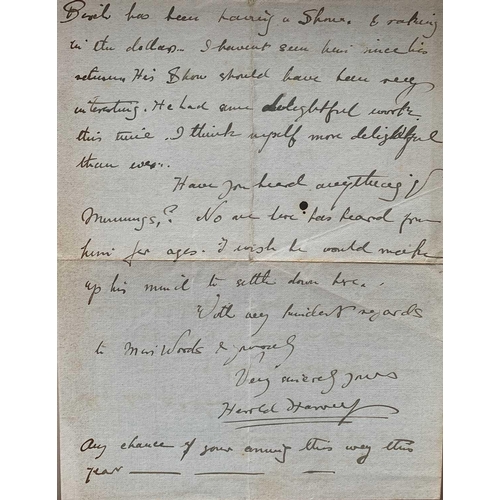 has been having a Show. & raking
in the dollars... I havent seen him since his
return. His Show should have been very
interesting. He had some delightful work
this time. I think myself more delightful
than ever.
Have you heard anything of
Munnings,? No one here has heard from
him for ages. I wish he would make
up his mind to settle down here..
With very kindest regards
to Mrs Woods & yourself
Very sincerely yours
Harold Harvey
Any chance of your coming this way this
year